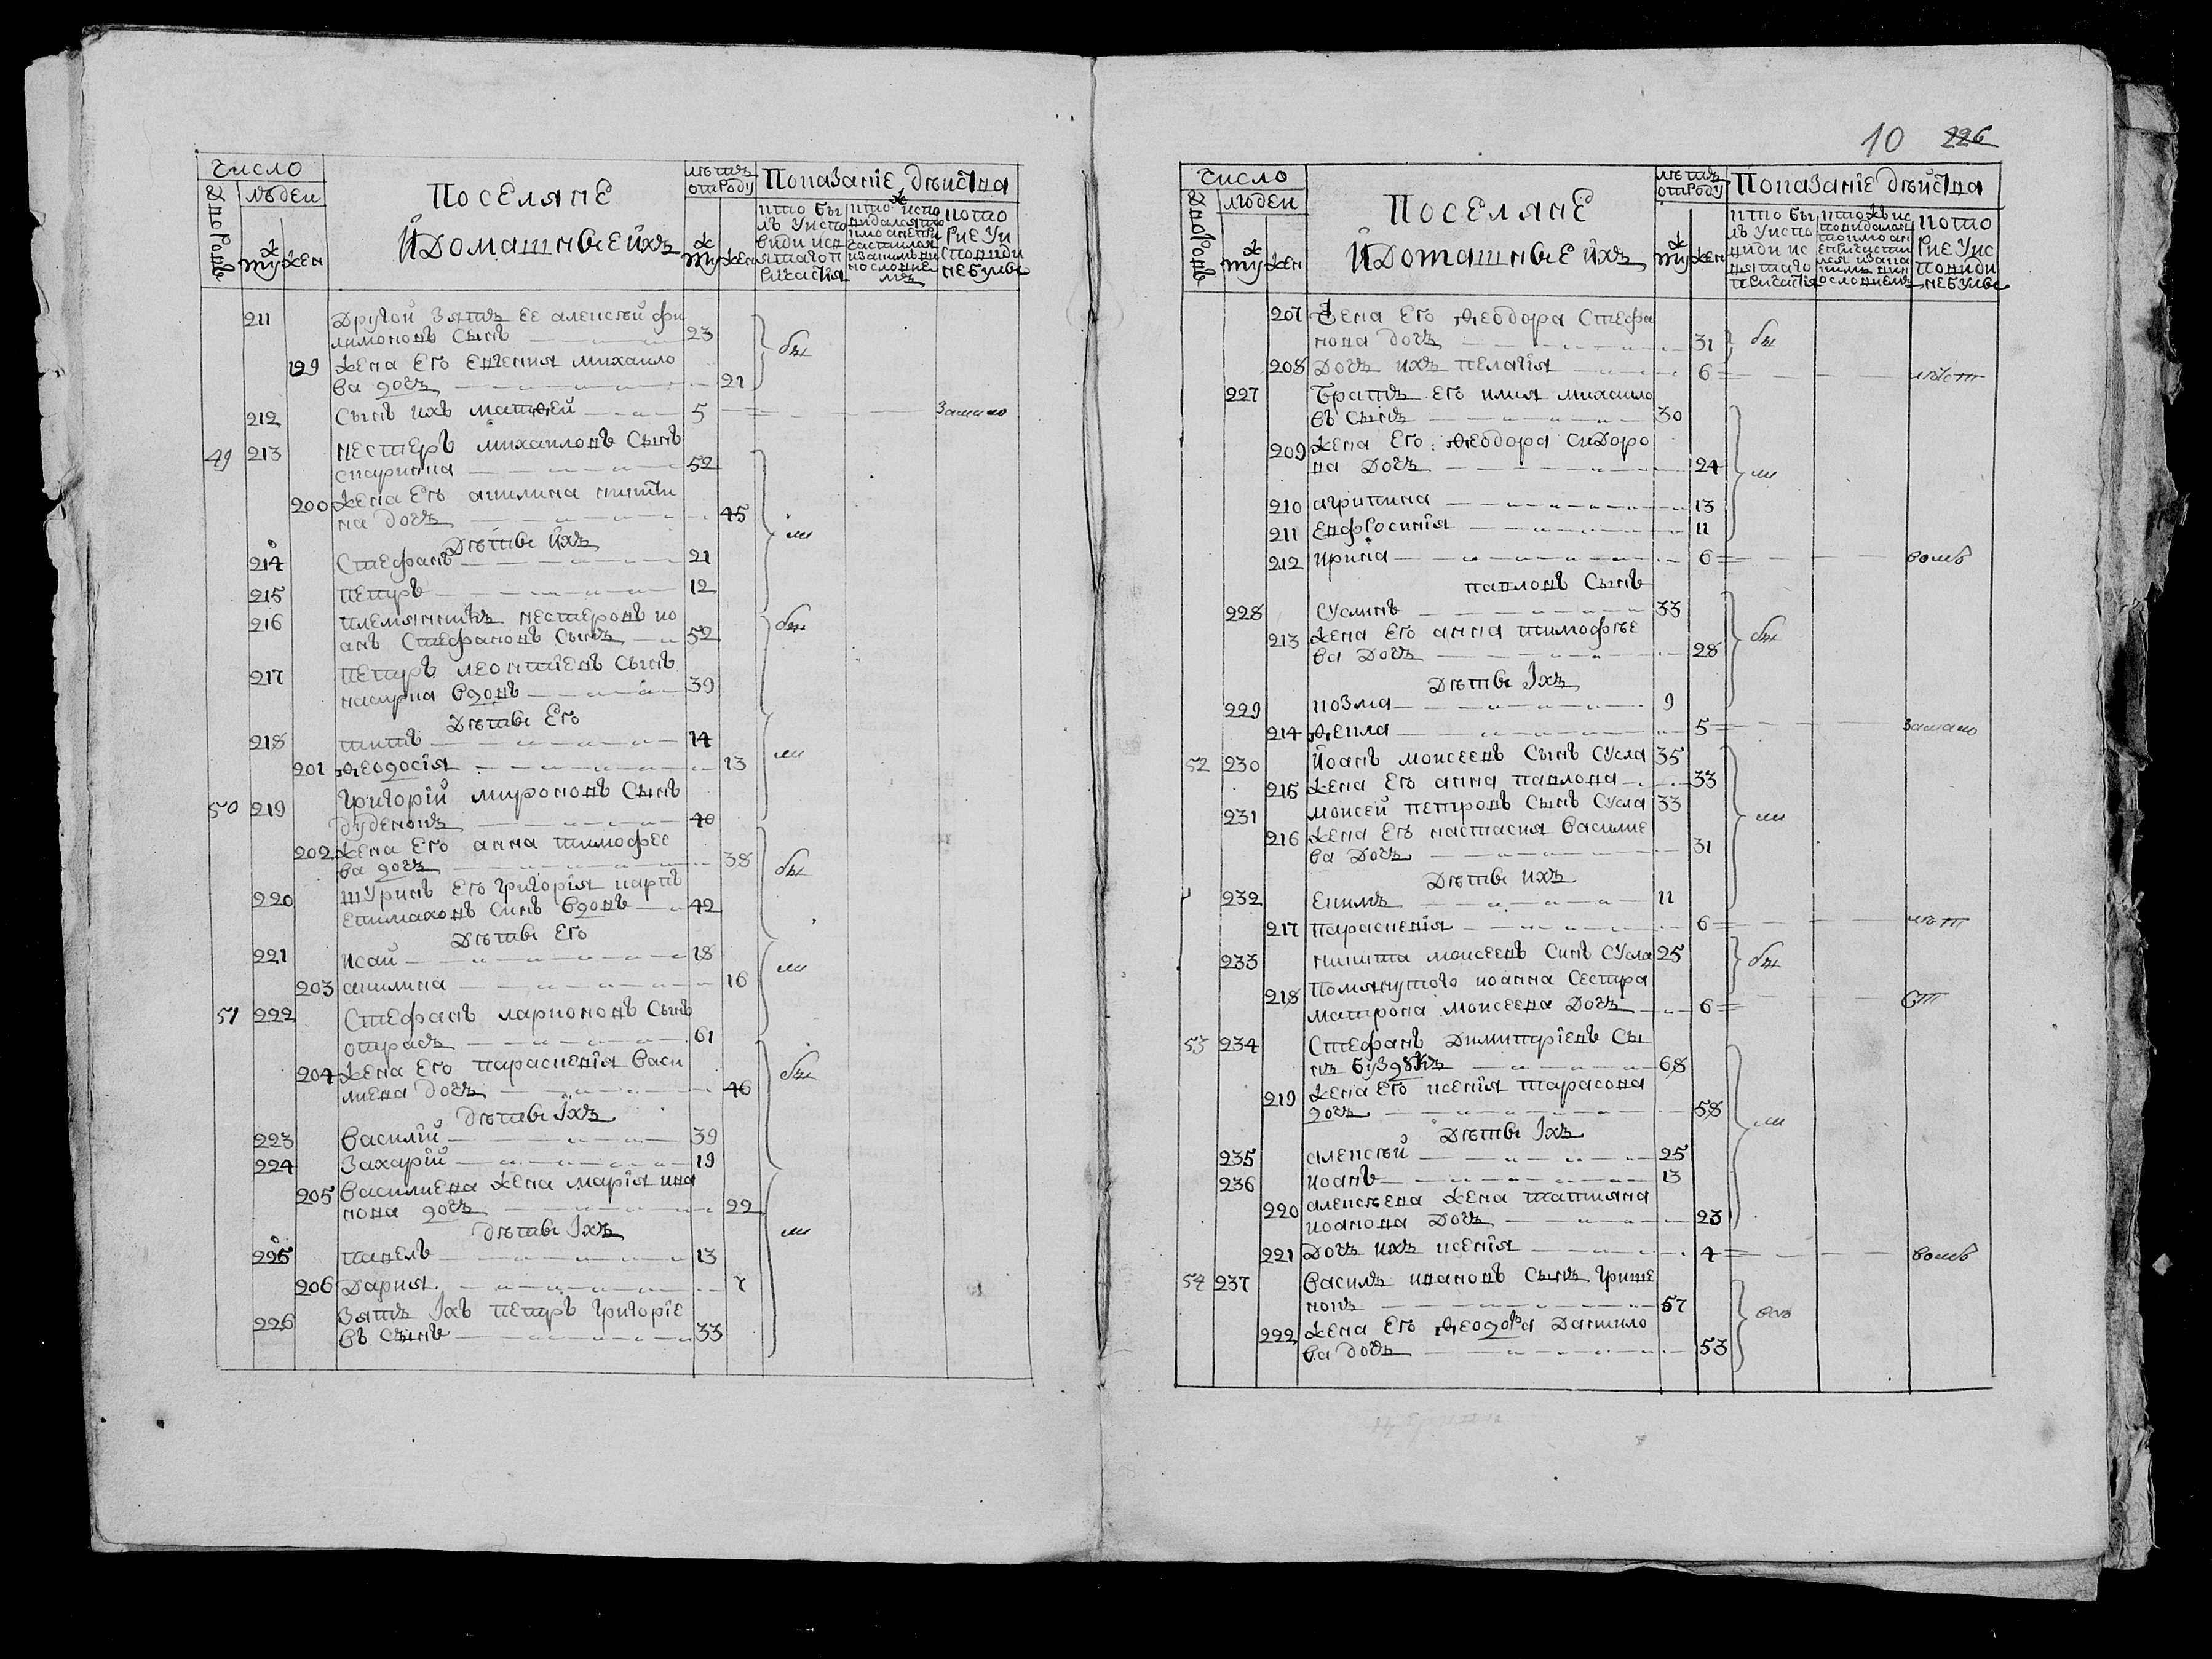 число
дворовъ
людей
муж
жен
Поселяне
и Домашнѣе ихъ
лѣтъ
отроду
муж
жен
Показаніе действа
кто бы
лъ уиспо
веди исп
ятаго п
ричастія
кто же испо
которие уи
споведи
небулы
211 Другой Зять ее алексѣй фи
лимоновъ Сынъ 23
199 жена его евгения михайло
ва дочь 21
212 Сынъ ихъ матѳей 5
Замало
49 213 нестеръ михаиловъ Сынъ
52
200 жена его акилина никити
на дочь 45
Дѣтые ихъ
214 Стефанъ 21
215 петръ 12
216 племянникъ нестеровъ ио
анъ Стефановъ Сынъ 52
217 петръ леонтиевъ Сынъ
вдовъ 39
Дѣтые Его
218 титъ 14
201 ѳеодосія 13
50 219 григорій мироновъ Сынъ
40
202 жена его анна тимофее
ва дочь 38
220 шуринъ его григорія карпъ
епимаховъ Синъ вдовъ 42
Дѣтые Его
221 исаи 18
203 акилина 16
51 222 Стефанъ ларионовъ Сынъ
61
204 жена его параскевія васи
лиева дочь 46
дѣтые Іхъ
223 василій 39
224 Захарій 19
205 василиева жена марія ива
нова дочь 22
дѣтые Іхъ
225 павелъ 13
206 Дария 7
226 Зять Іхъ петръ григорие
въ Сынъ 33
10 226
число
дворовъ
людей
муж
жен
Поселяне
и Домашнѣе ихъ
лѣтъ
отроду
муж
жен
Показаніе дейсtва
кто бы
лъ уиспо
веди ис
вятаго
причастія
которие уис
поведи
небулы
207 жена его ѳеодора Стефа
нова дочь 31
208 Дочь ихъ пелагія 6
227 Братъ его илия михаило
въ Сынъ 30
209 жена его ѳеодора сидоро
ва дочь 24
210 агрипина 13
211 евфросинія 11
212 ирина 6
павловъ Сынъ
228 Суслинъ 33
213 жена его анна тимофѣе
ва дочь 28
Дѣтые Іхъ
229 козма 9
214 ѳекла 5
Замало
52 230 иоанъ моисеевъ Сынъ Сусла 35
215 жена его анна павлова 33
231 моисей петровъ Сынъ Сусла 33
216 жена его настасия василие
ва дочь 31
Дѣтые ихъ
232 екимъ 11
217 параскевія 6
233 никита моисеевъ Синъ Сусла 25
218 помянутого иоанна Сестра
матрона моисеева дочь 6
53 234 Стефанъ Димитріевъ Сы
нъ 68
219 жена его ксенія тарасова
дочь 58
Дѣтые Іхъ
235 алексѣй 25
236 иоанъ 13
220 алексѣева жена татияна
иоанова дочь 23
221 Дочь ихъ ксенія 4
54 237 василь ивановъ Сынъ грише
нокъ 57
222 жена его ѳеодора Данило
ва дочь 53